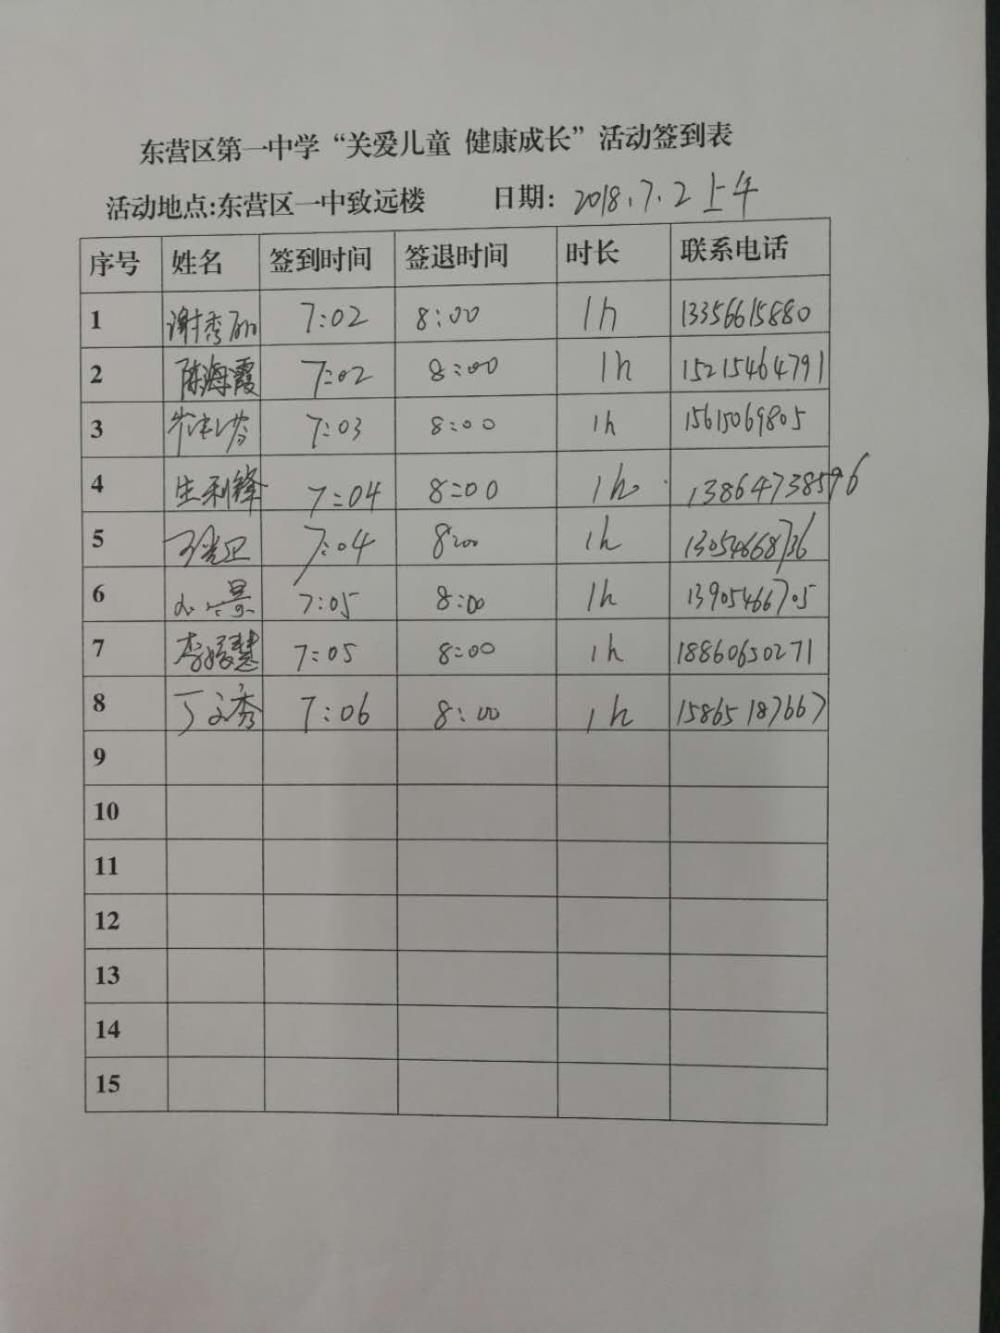 东营区第一中学“关爱儿童 健康成长”活动签到表
活动地点:东营区一中致远楼 日期: 2018.7.2上午
序号 姓名 签到时间 签退时间 时长 联系电话
1 谢秀丽 7:02 8:00 1h 13356615880
2 陈海霞 7:02 8:00 1h 15215464791
3 7:03 8:00 1h 15615069805
4 生利锋 7:04 8:00 1h 13864738596
5 7:04 8:00 1h 13054668736
6 7:05 8:00 1h 13905466705
7 李媛慧 7:05 8:00 1h 18860630271
8 丁文秀 7:06 8:00 1h 15865187667
9
10
11
12
13
14
15